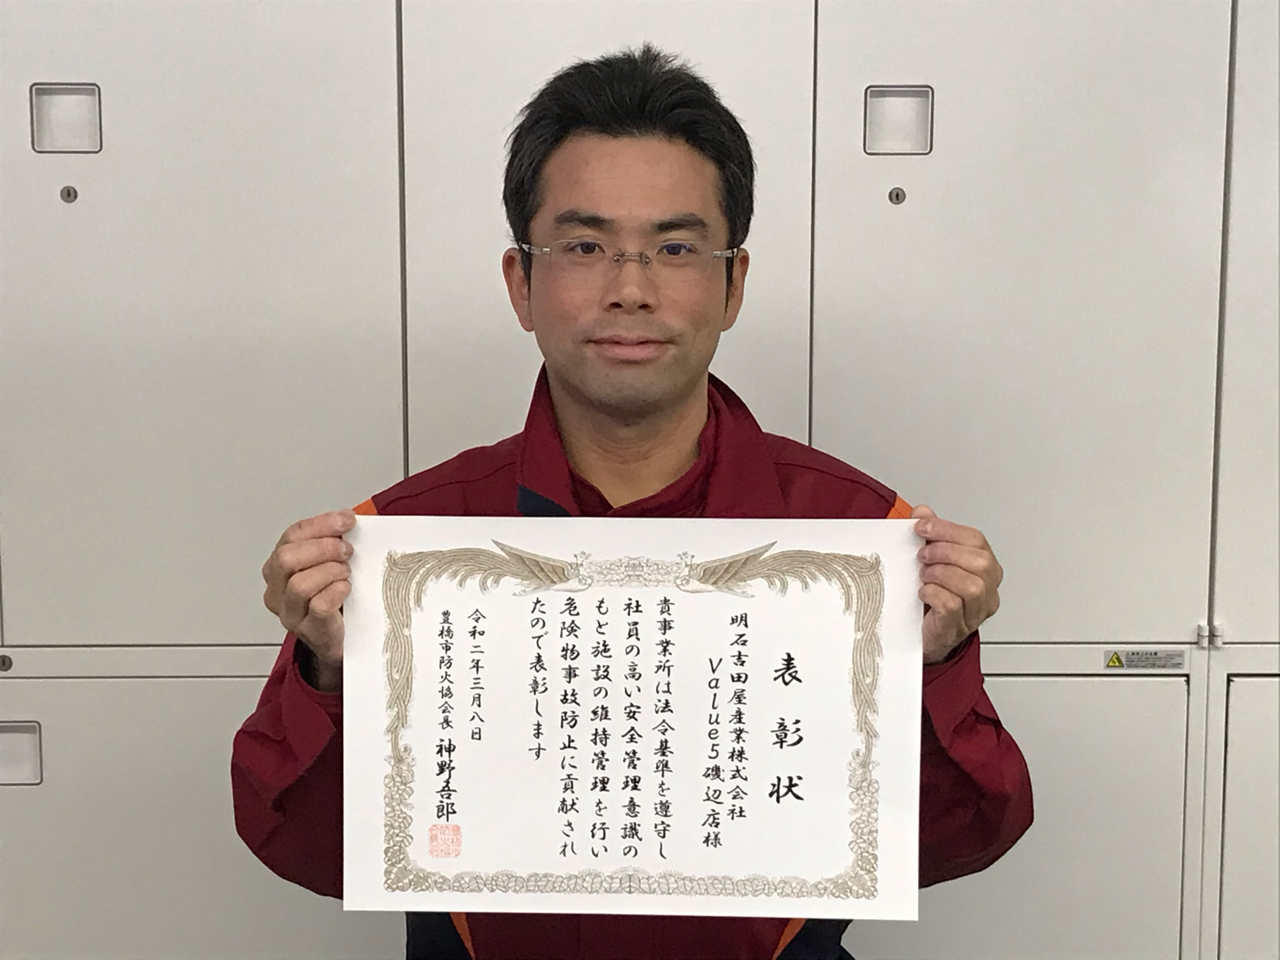 表彰状
明石吉田屋産業株式会社
Value5磯辺店様
貴事業所は法令基準を遵守し
社員の高い安全管理意識の
もと施設の維持管理を行い
危険物事故防止に貢献され
たので表彰します
令和二年三月八日
豊橋市防火協会長 神野吾郎